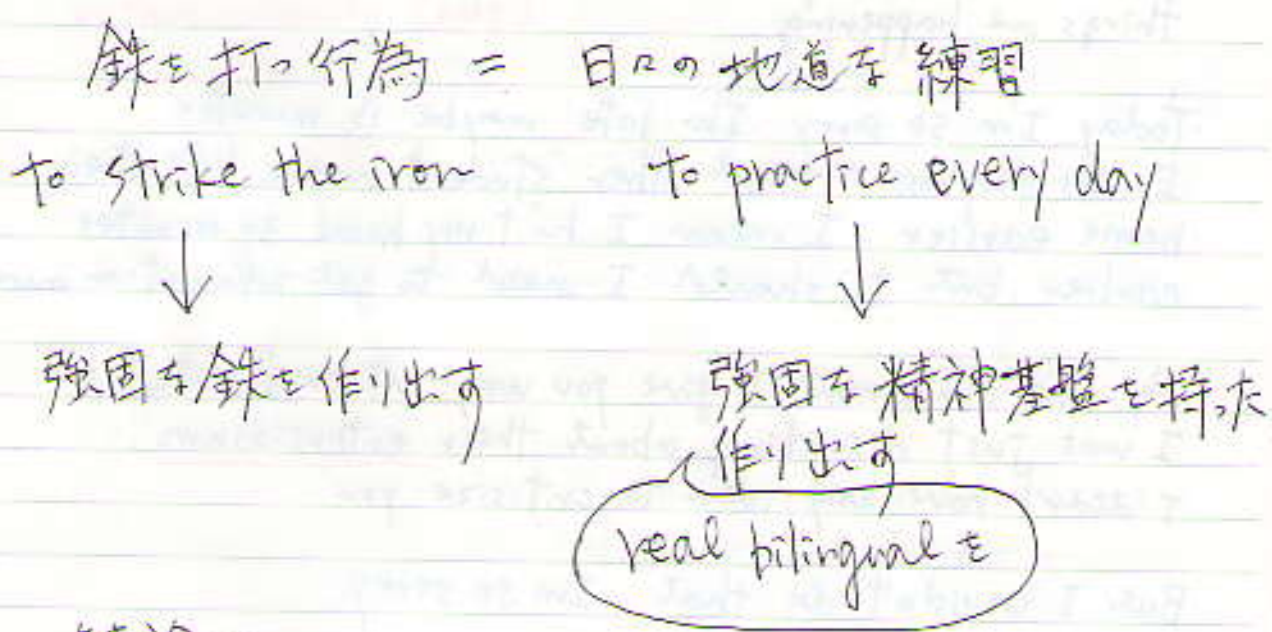 鉄を打つ行為 = 日々の地道な練習
to strike the iron to practice every day
強固な鉄を作り出す 強固な精神基盤を持った
作り出す
real bilingual を